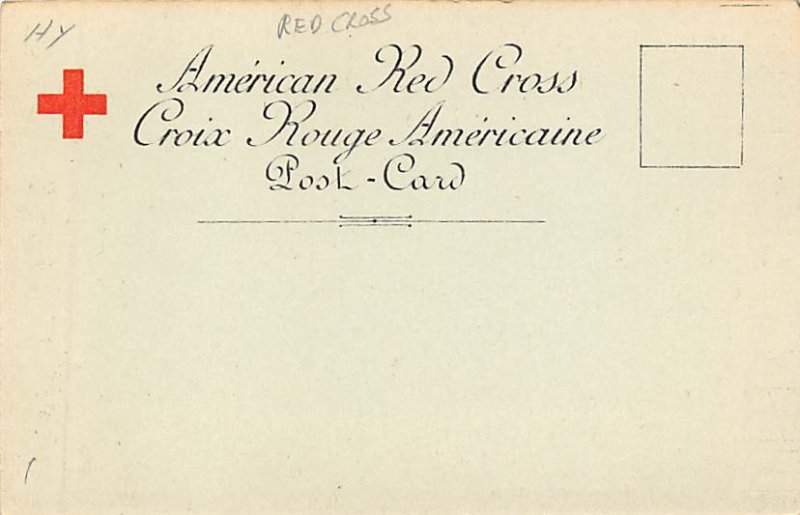 HY
RED CROSS
Américan Red Cross
Croix Rouge Américaine
Post-Card